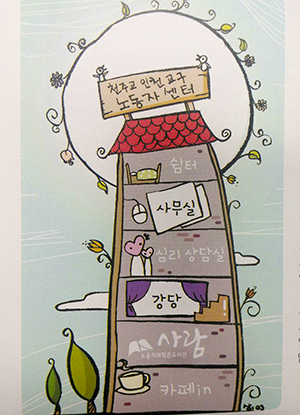 천주교 인천교구
노동자 센터
쉼터
사무실
심리 상담실
강당
사람
노동자의작은도서관
카페in